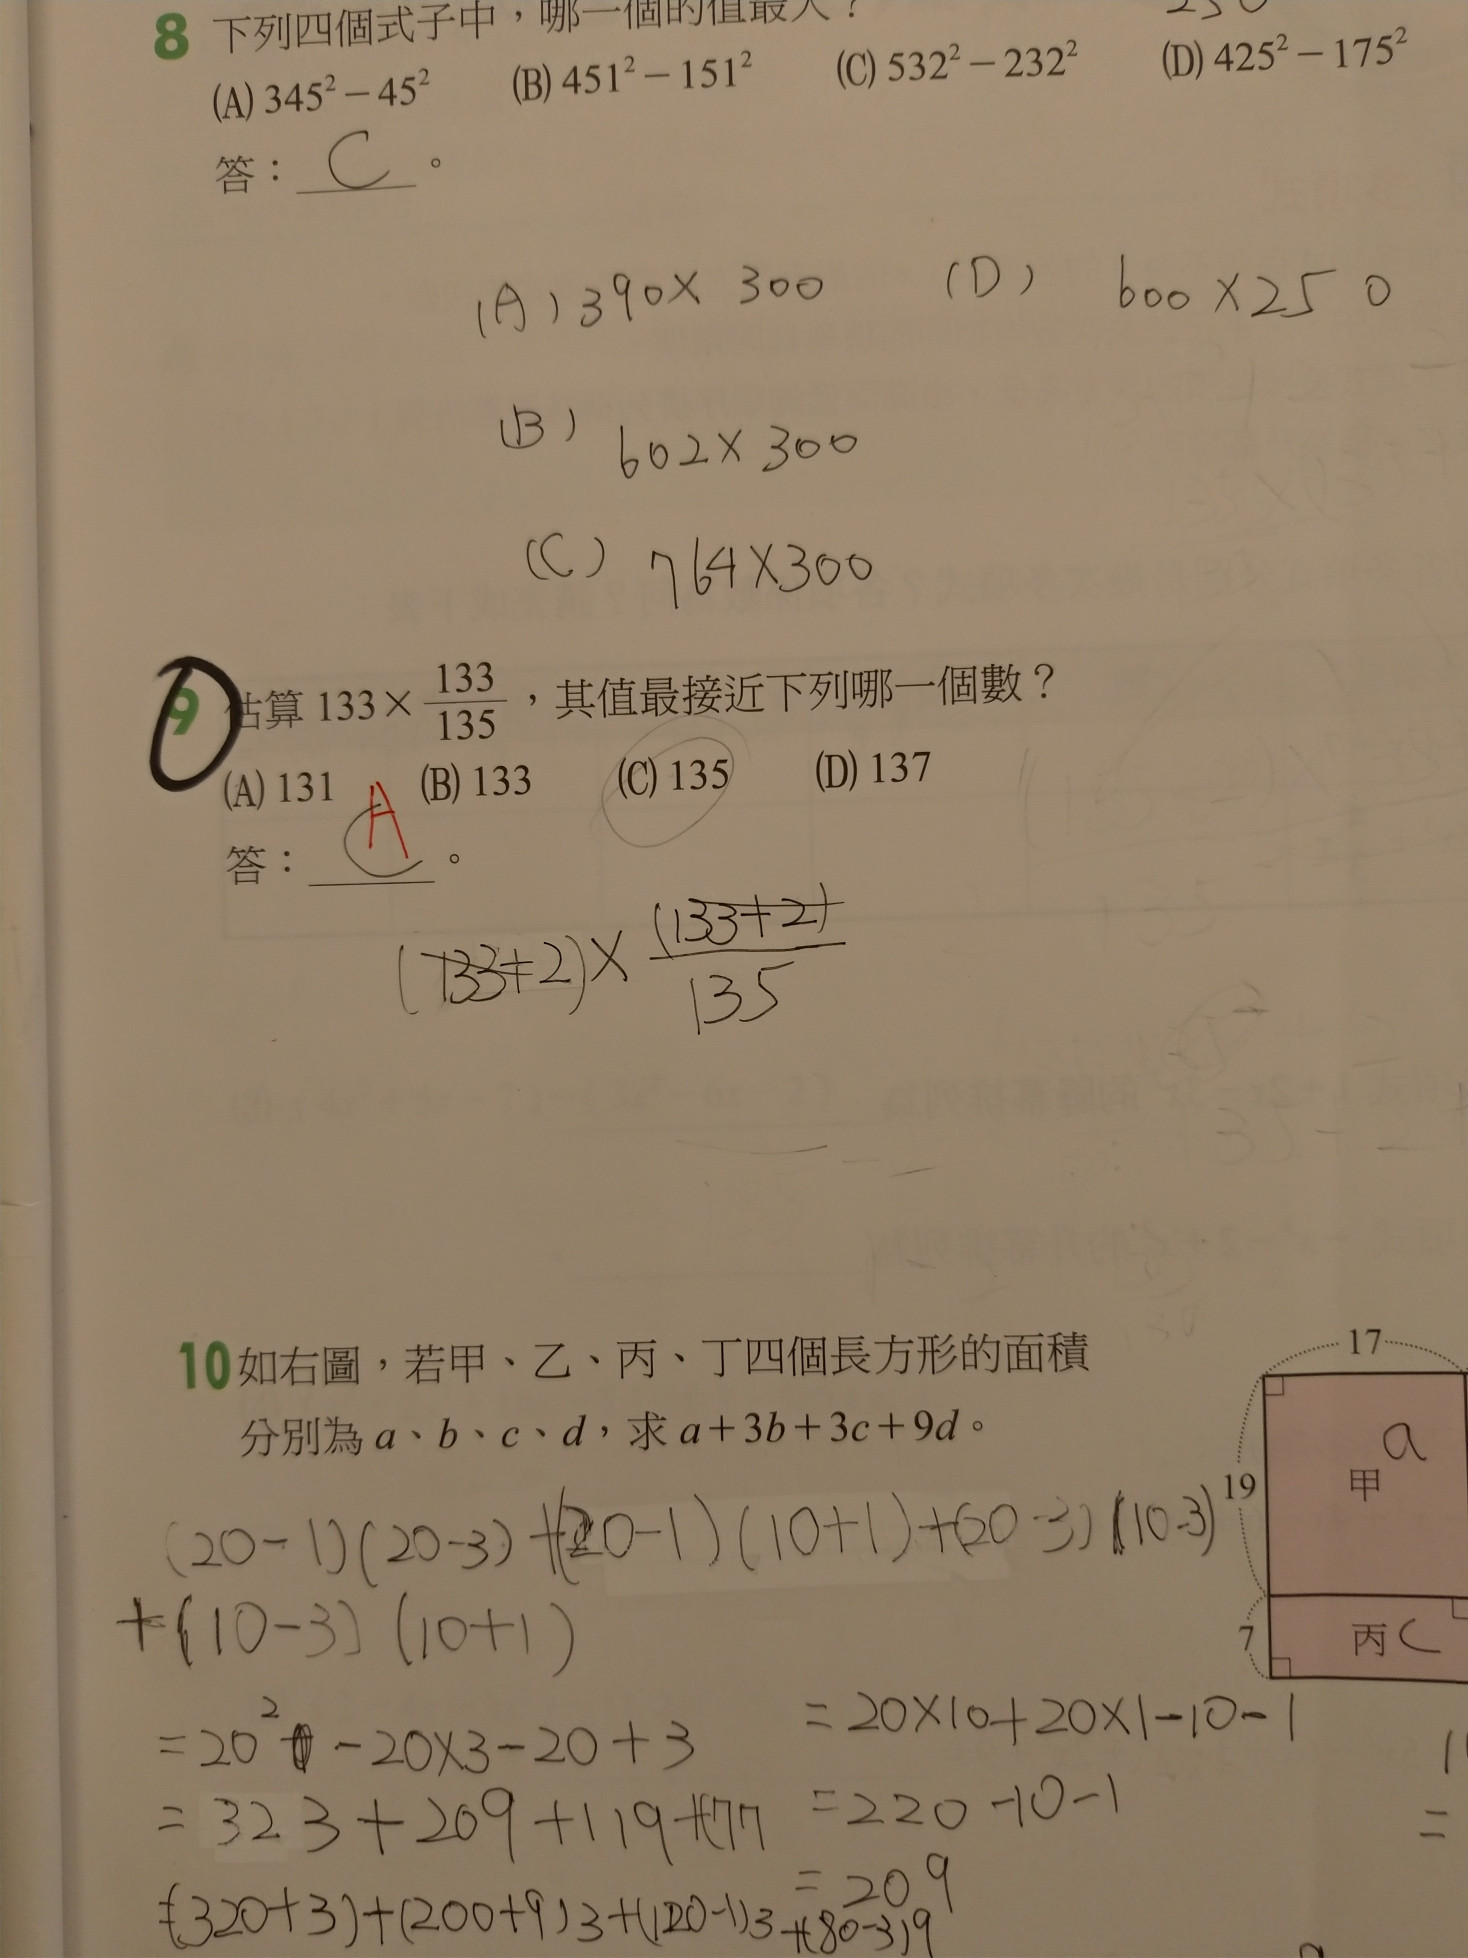 8 下列四個式子中，哪一個的值最大？
(A) 345² − 45² (B) 451² − 151² (C) 532² − 232² (D) 425² − 175²
答：C。
(A) 390 × 300 (D) 600 × 250
(B) 602 × 300
(C) 764 × 300
9 估算 133 × 133/135，其值最接近下列哪一個數？
(A) 131 (B) 133 (C) 135 (D) 137
答：C A。
(133+2) × (133+2)/135
10 如右圖，若甲、乙、丙、丁四個長方形的面積
分別為 a、b、c、d，求 a + 3b + 3c + 9d。
17
a
甲
19
7
丙 C
(20-1)(20-3)+(20-1)(10+1)+(20-3)(10-3)
+(10-3)(10+1)
=20² -20×3-20+3
=20×10+20×1-10-1
=323+209+119+77
=220-10-1
=209
=(320+3)+(200+9)3+(120-1)3+(80-3)9